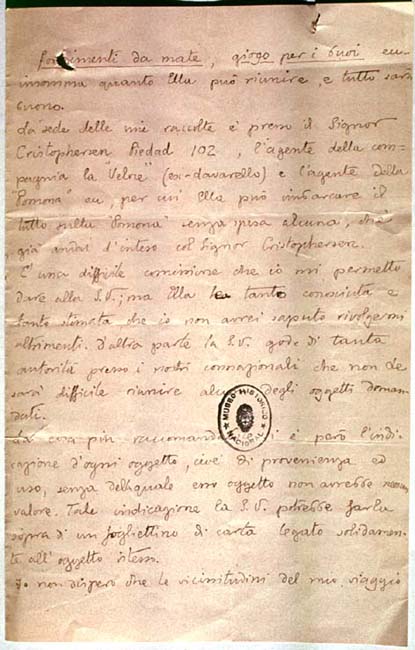 fornimenti da mate, giogo per i buoi ecc
insomma quanto Ella può riunire, e tutto sarà
buono.
La sede delle mie raccolte è presso il Signor
Cristophersen Piedad 102, l'agente della com=
pagnia la "Veloce" (ex-Lavarello) e l'agente della
"Pomona" ecc, per cui Ella può imbarcare il
tutto sulla "Pomona" senza spesa alcuna, chè
già ... l'inteso col Signor Cristophersen.
È una difficile commissione che io mi permetto
dare alla S.V.; ma Ella è tanto conosciuta e
tanto stimata che io non avrei saputo rivolgermi
altrimenti. D'altra parte la S.V. gode di tanta
autorità presso i nostri connazionali che non Le
sarà difficile riunire degli oggetti doman
dati.
La cosa più è però l'indi
cazione d'ogni oggetto, cioè di provenienza ed
uso, senza della quale esso oggetto non avrebbe nessun
valore. Tale indicazione la S.V. potrebbe farla
sopra di un fogliettino di carta legato solidamen
te all'oggetto stesso.
Io non dispero che le vicissitudini del mio viaggio
MUSEO HISTORICO
NACIONAL